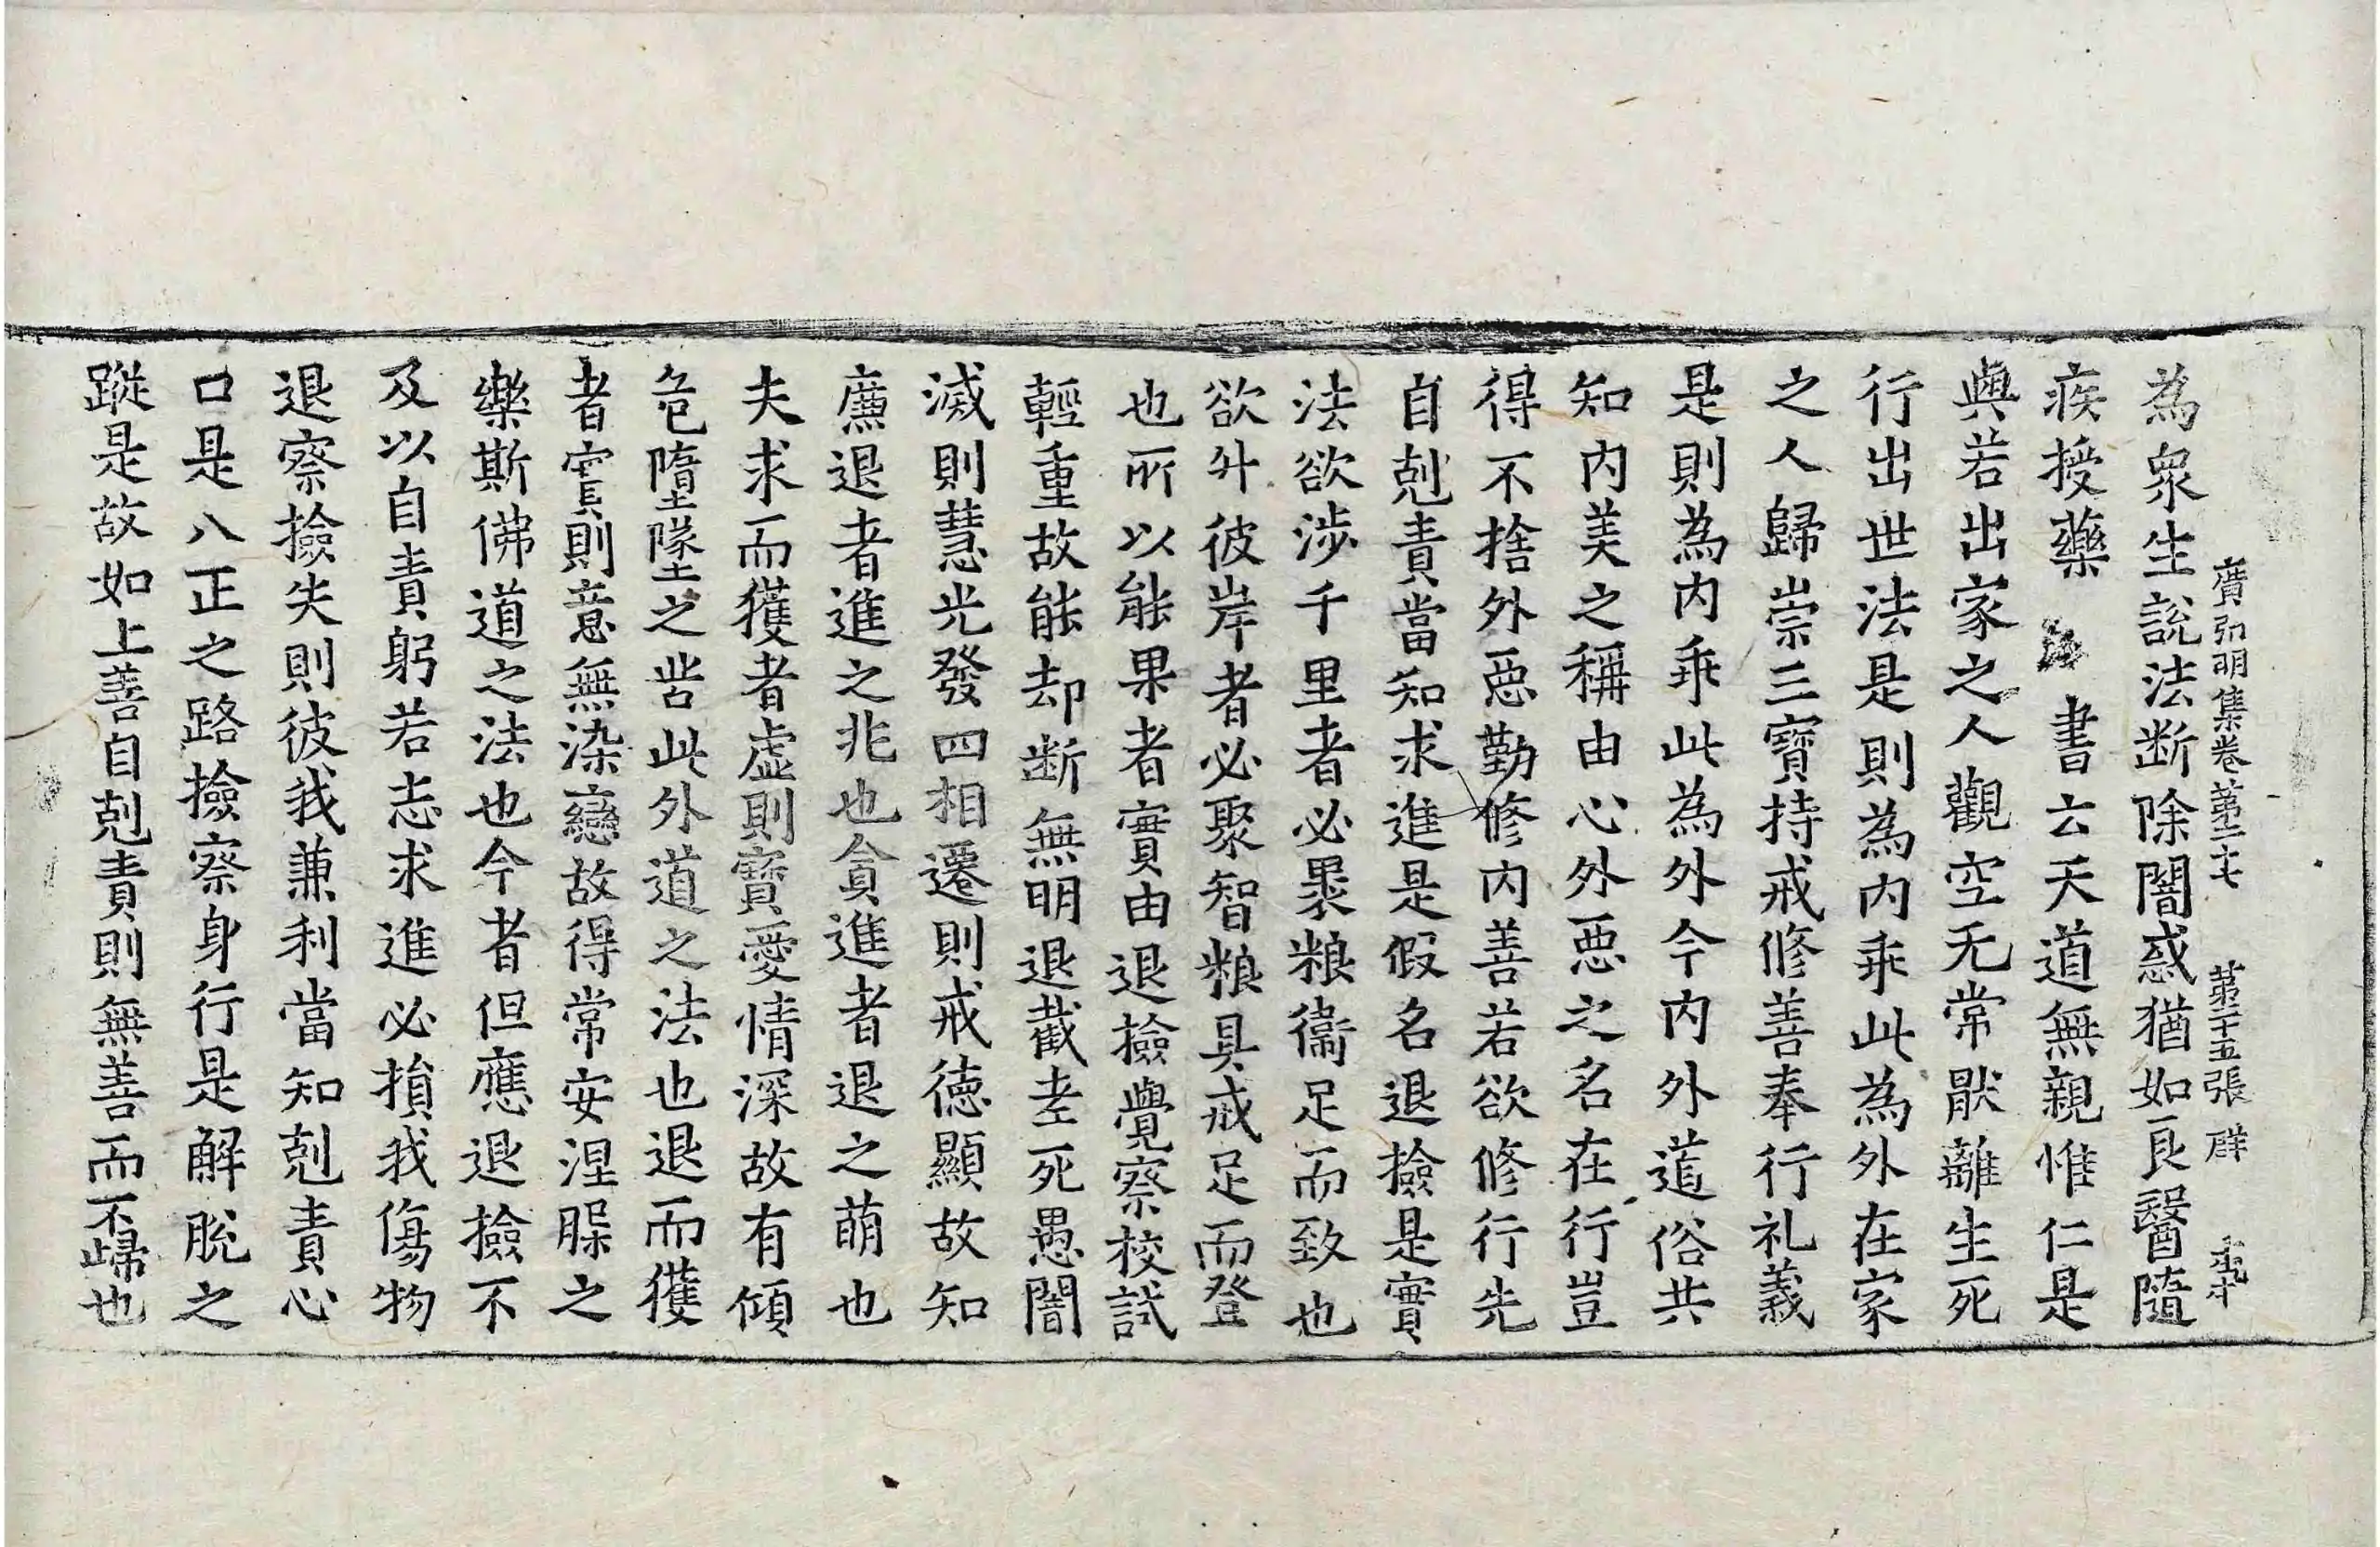 廣弘明集卷第二十七 第二十五張 群
為衆生說法断除闇惑猶如良醫隨
疾授藥 書云天道無親惟仁是
與若出家之人觀空无常猒離生死
行出世法是則為内乖此為外在家
之人歸崇三寶持戒修善奉行礼義
是則為内乖此為外今内外道俗共
知内美之稱由心外惡之名在行豈
得不捨外惡勤修内善若欲修行先
自剋責當知求進是假名退撿是實
法欲涉千里者必褁粮衞足而致也
欲升彼岸者必聚智粮具戒足而登
也所以能果者實由退撿覺察校試
輕重故能却断無明退截老死愚闇
滅則慧光發四相遷則戒德顯故知
廉退者進之兆也貪進者退之萌也
夫求而獲者虚則寶愛情深故有傾
危墮墜之苦此外道之法也退而獲
者實則意無染戀故得常安涅槃之
樂斯佛道之法也今者但應退撿不
及以自責躬若志求進必損我傷物
退察撿失則彼我兼利當知剋責心
口是八正之路撿察身行是解脫之
蹤是故如上善自剋責則無善而不歸也